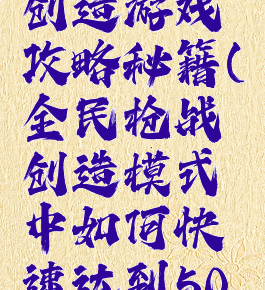 创造游戏
攻略秘籍(
全民枪战
创造模式
中如何快
速达到50